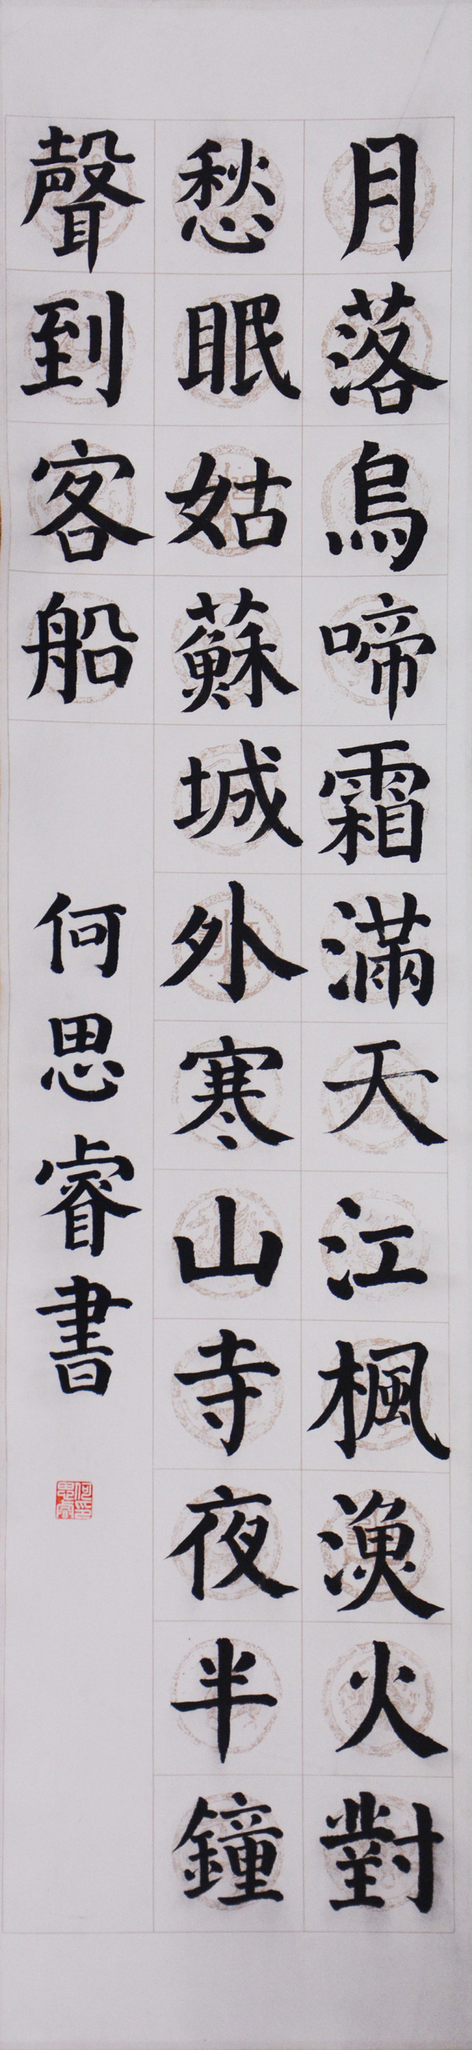 月落烏啼霜滿天江楓漁火對
愁眠姑蘇城外寒山寺夜半鐘
聲到客船
何思睿書